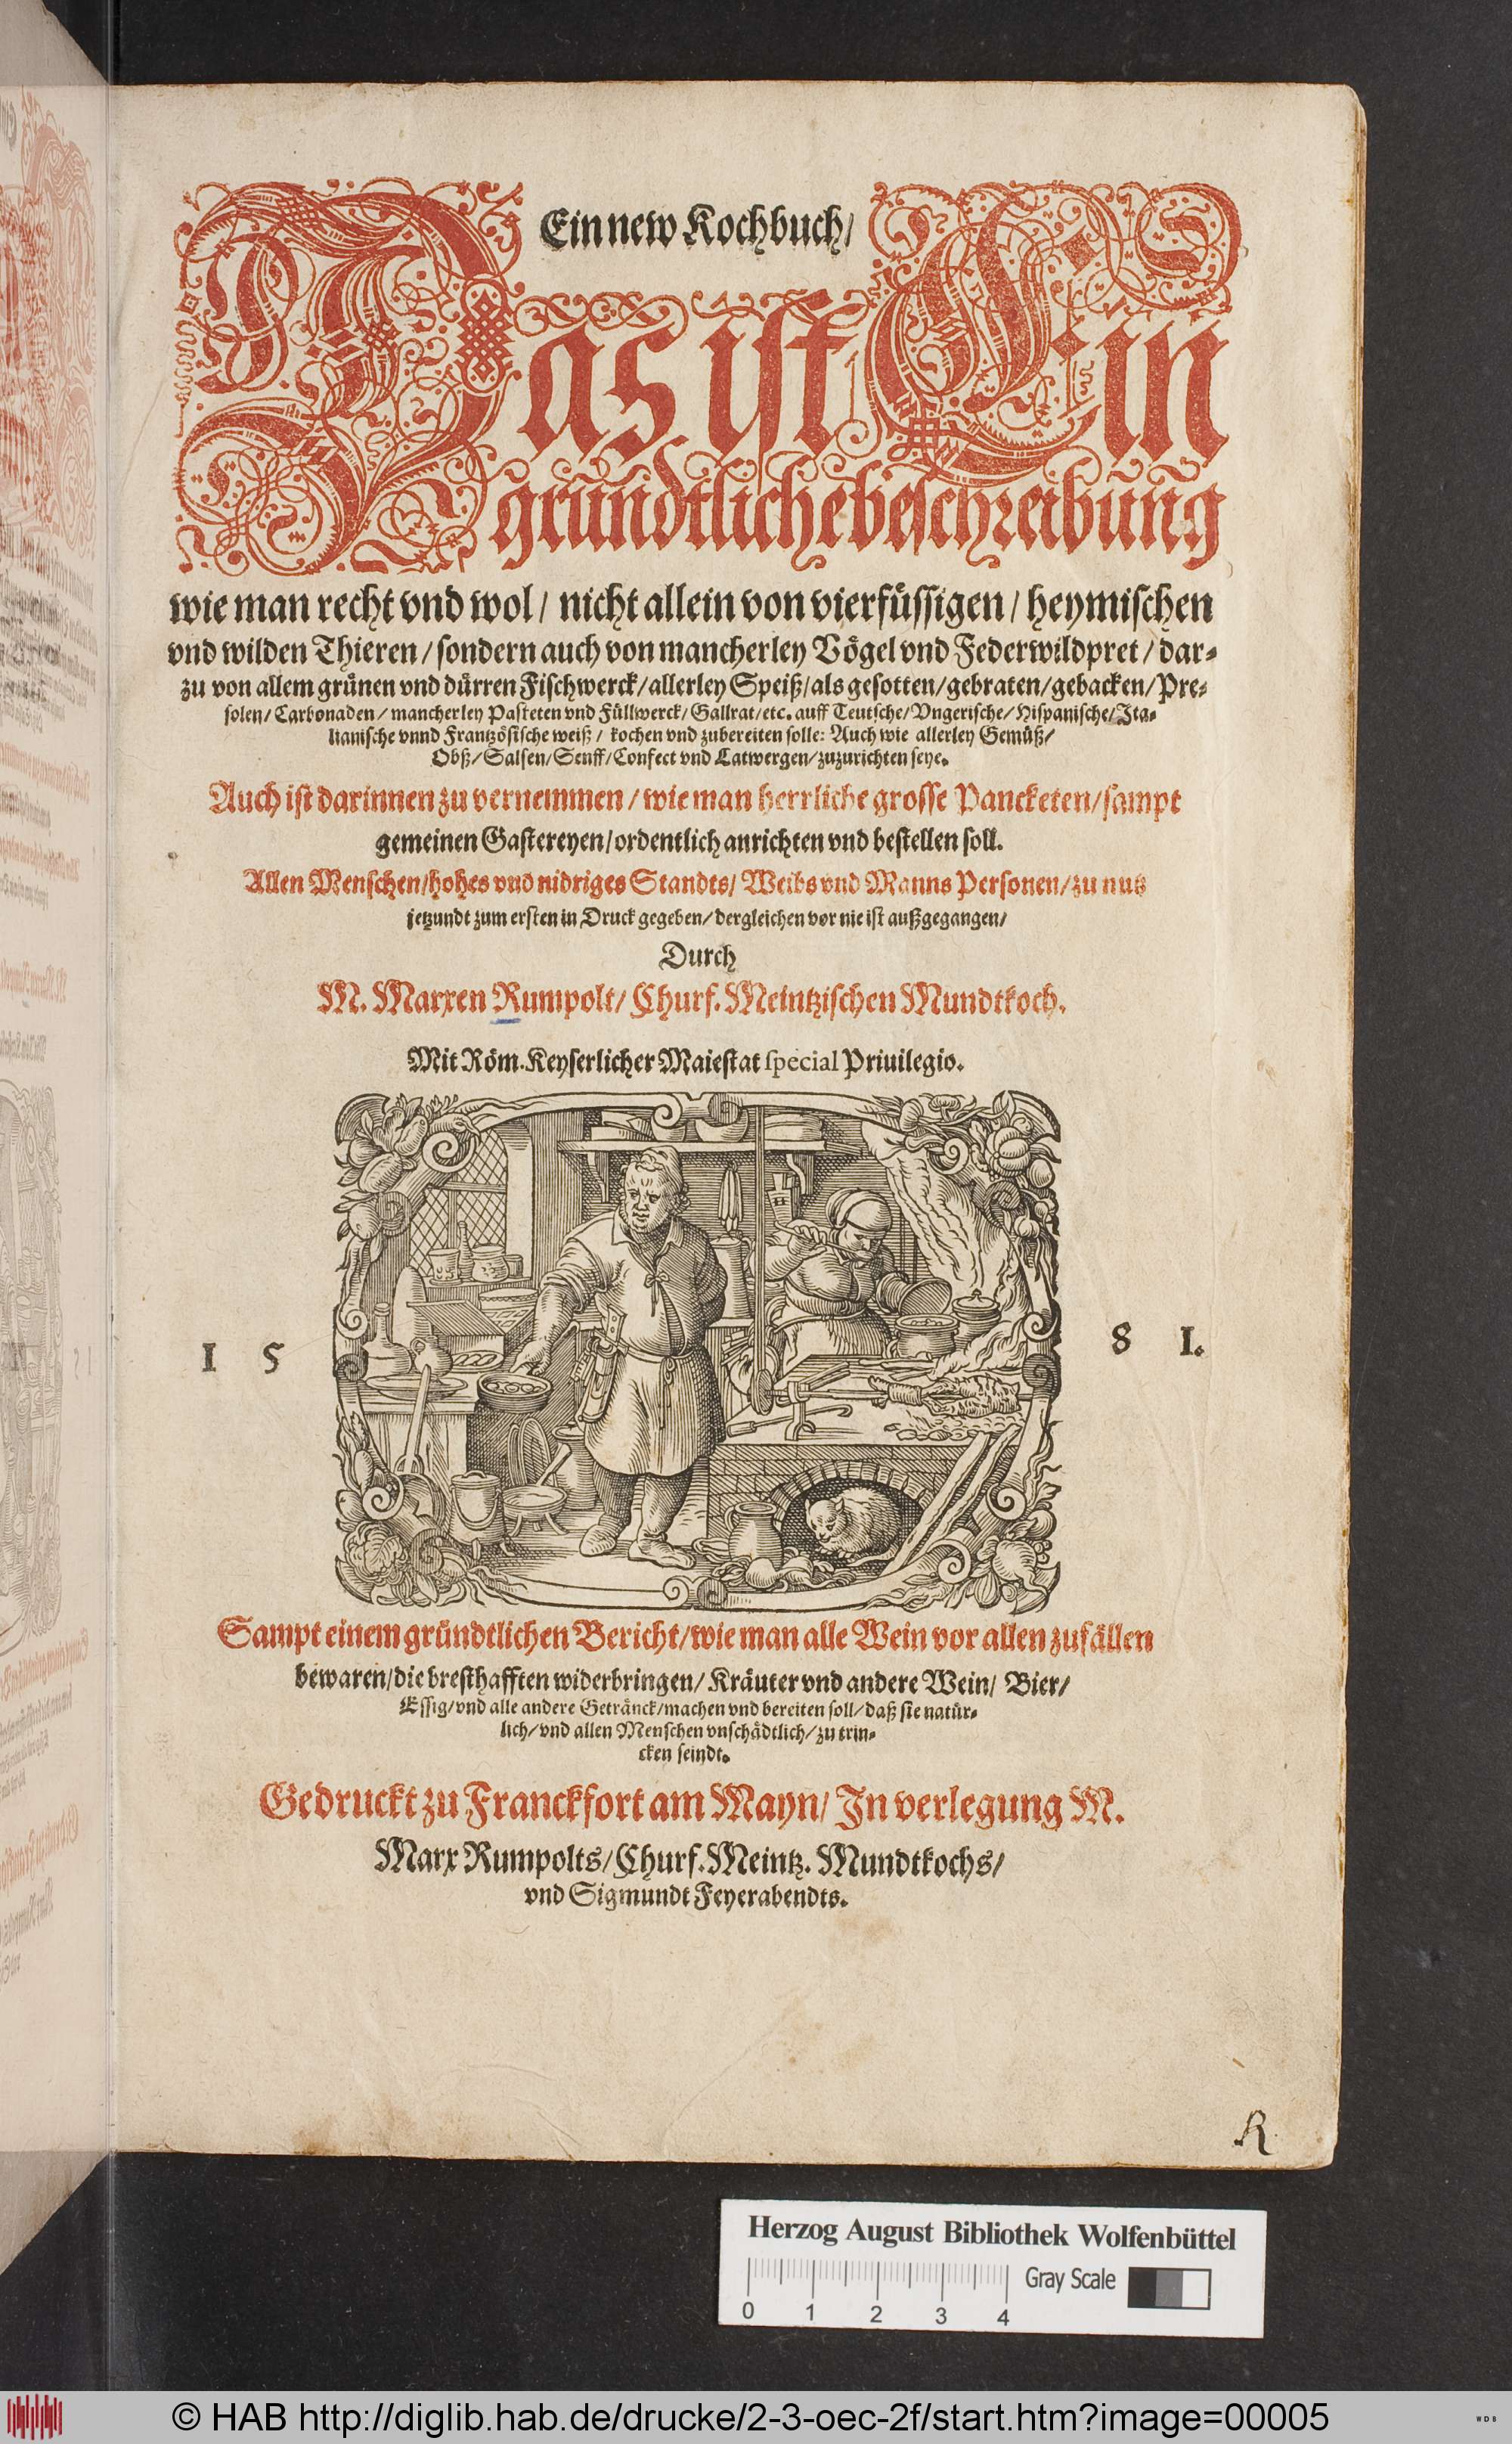 Ein new Kochbuch/
Das ist Ein
gründtliche beschreibung
wie man recht vnd wol/ nicht allein von vierfüssigen/ heymischen
vnd wilden Thieren/ sondern auch von mancherley Vögel vnd Federwildpret/ dar-
zu von allem grünen vnd dürren Fischwerck/ allerley Speiß/ als gesotten/ gebraten/ gebacken/ Pre-
solen/ Carbonaden/ mancherley Pasteten vnd Füllwerck/ Gallrat/ etc. auff Teutsche/ Vngerische/ Hispanische/ Ita-
lianische vnnd Frantzösische weiß/ kochen vnd zubereiten solle: Auch wie allerley Gemüß/
Obß/ Salsen/ Senff/ Confect vnd Latwergen/ zuzurichten seye.
Auch ist darinnen zu vernemmen/ wie man herrliche grosse Pancketen/ sampt
gemeinen Gastereyen/ ordentlich anrichten vnd bestellen soll.
Allen Menschen/ hohes vnd nidriges Standts/ Weibs vnd Manns Personen/ zu nutz
jetzundt zum ersten in Druck gegeben/ dergleichen vor nie ist außgegangen/
Durch
M. Marxen Rumpolt/ Churf. Meintzischen Mundtkoch.
Mit Röm. Keyserlicher Maiestat special Priuilegio.
1 5 8 1.
Sampt einem gründtlichen Bericht/ wie man alle Wein vor allen zufällen
bewaren/ die bresthafften widerbringen/ Kräuter vnd andere Wein/ Bier/
Essig/ vnd alle andere Getränck/ machen vnd bereiten soll/ daß sie natür-
lich/ vnd allen Menschen vnschädtlich/ zu trin-
cken seindt.
Gedruckt zu Franckfort am Mayn/ In verlegung M.
Marx Rumpolts/ Churf. Meintz. Mundtkochs/
vnd Sigmundt Feyerabendts.
R
Herzog August Bibliothek Wolfenbüttel
Gray Scale
0 1 2 3 4
© HAB http://diglib.hab.de/drucke/2-3-oec-2f/start.htm?image=00005
WDB